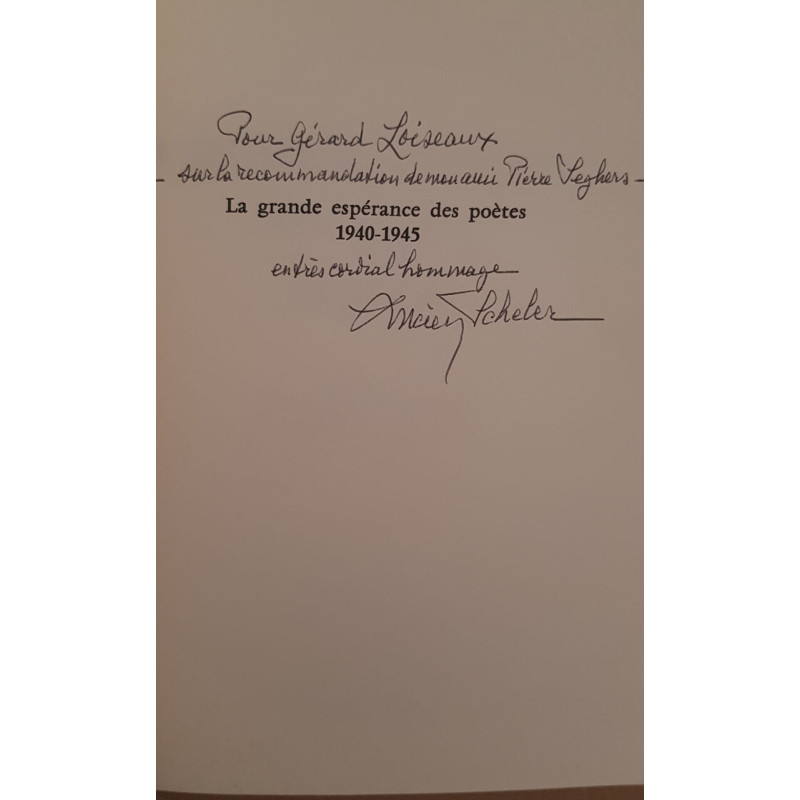 Pour Gérard Loiseaux
sur la recommandation de mon ami Pierre Seghers
La grande espérance des poètes
1940-1945
en très cordial hommage
Lucien Scheler